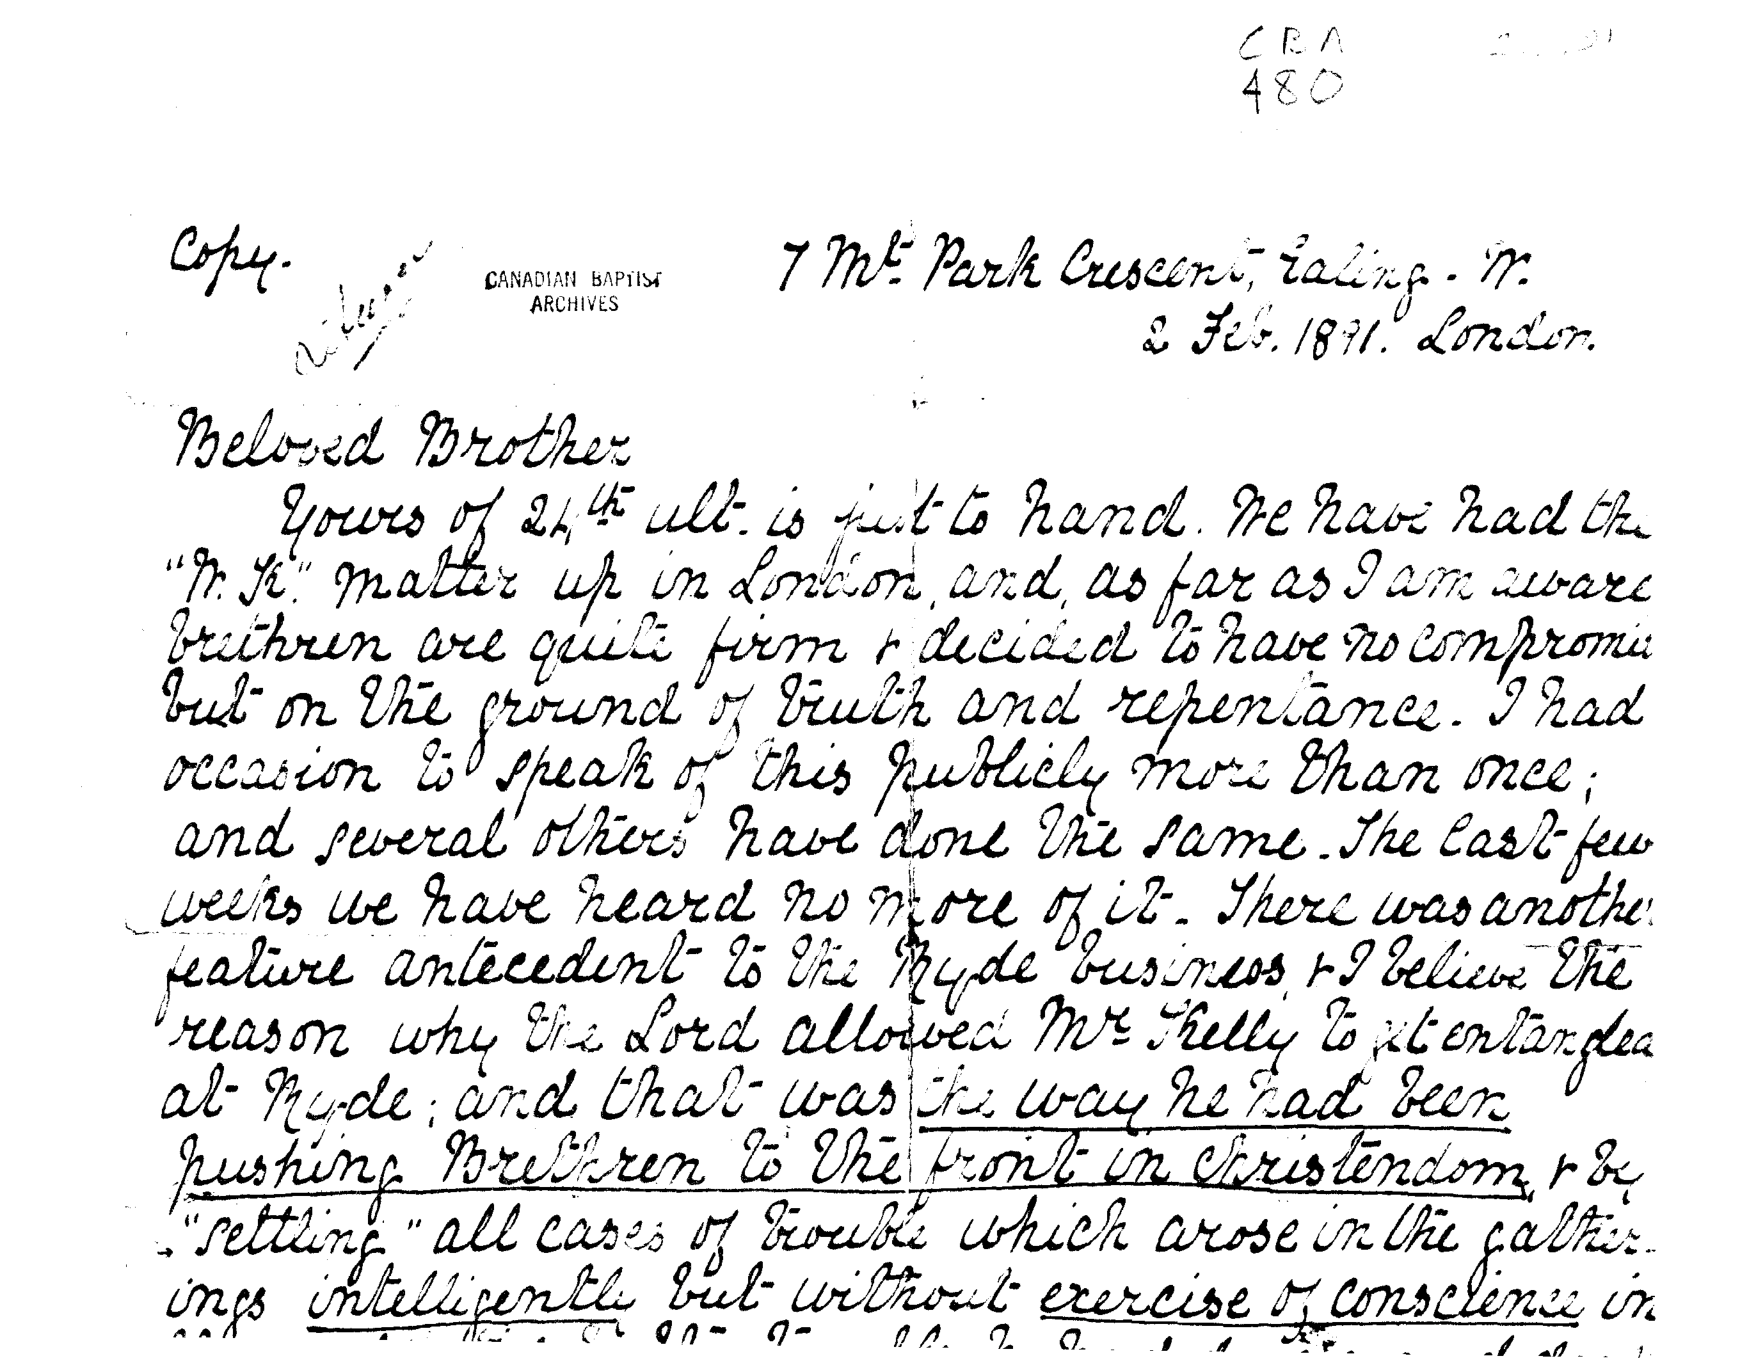 CBA
480
Copy.
CANADIAN BAPTIST
ARCHIVES
7 Mt. Park Crescent, Ealing - W.
2 Feb. 1891. London.
Beloved Brother
Yours of 24th ult. is just to hand. We have had the
"W. K." matter up in London, and, as far as I am aware
brethren are quite firm & decided to have no compromis
but on the ground of truth and repentance. I had
occasion to speak of this publicly more than once;
and several others have done the same. The last few
weeks we have heard no more of it. There was another
feature antecedent to the Ryde business, & I believe the
reason why the Lord allowed Mr Kelly to get entangled
at Ryde; and that was the way he had been
pushing Brethren to the front in Christendom, & by
"settling" all cases of trouble which arose in the gather-
ings intelligently but without exercise of conscience in